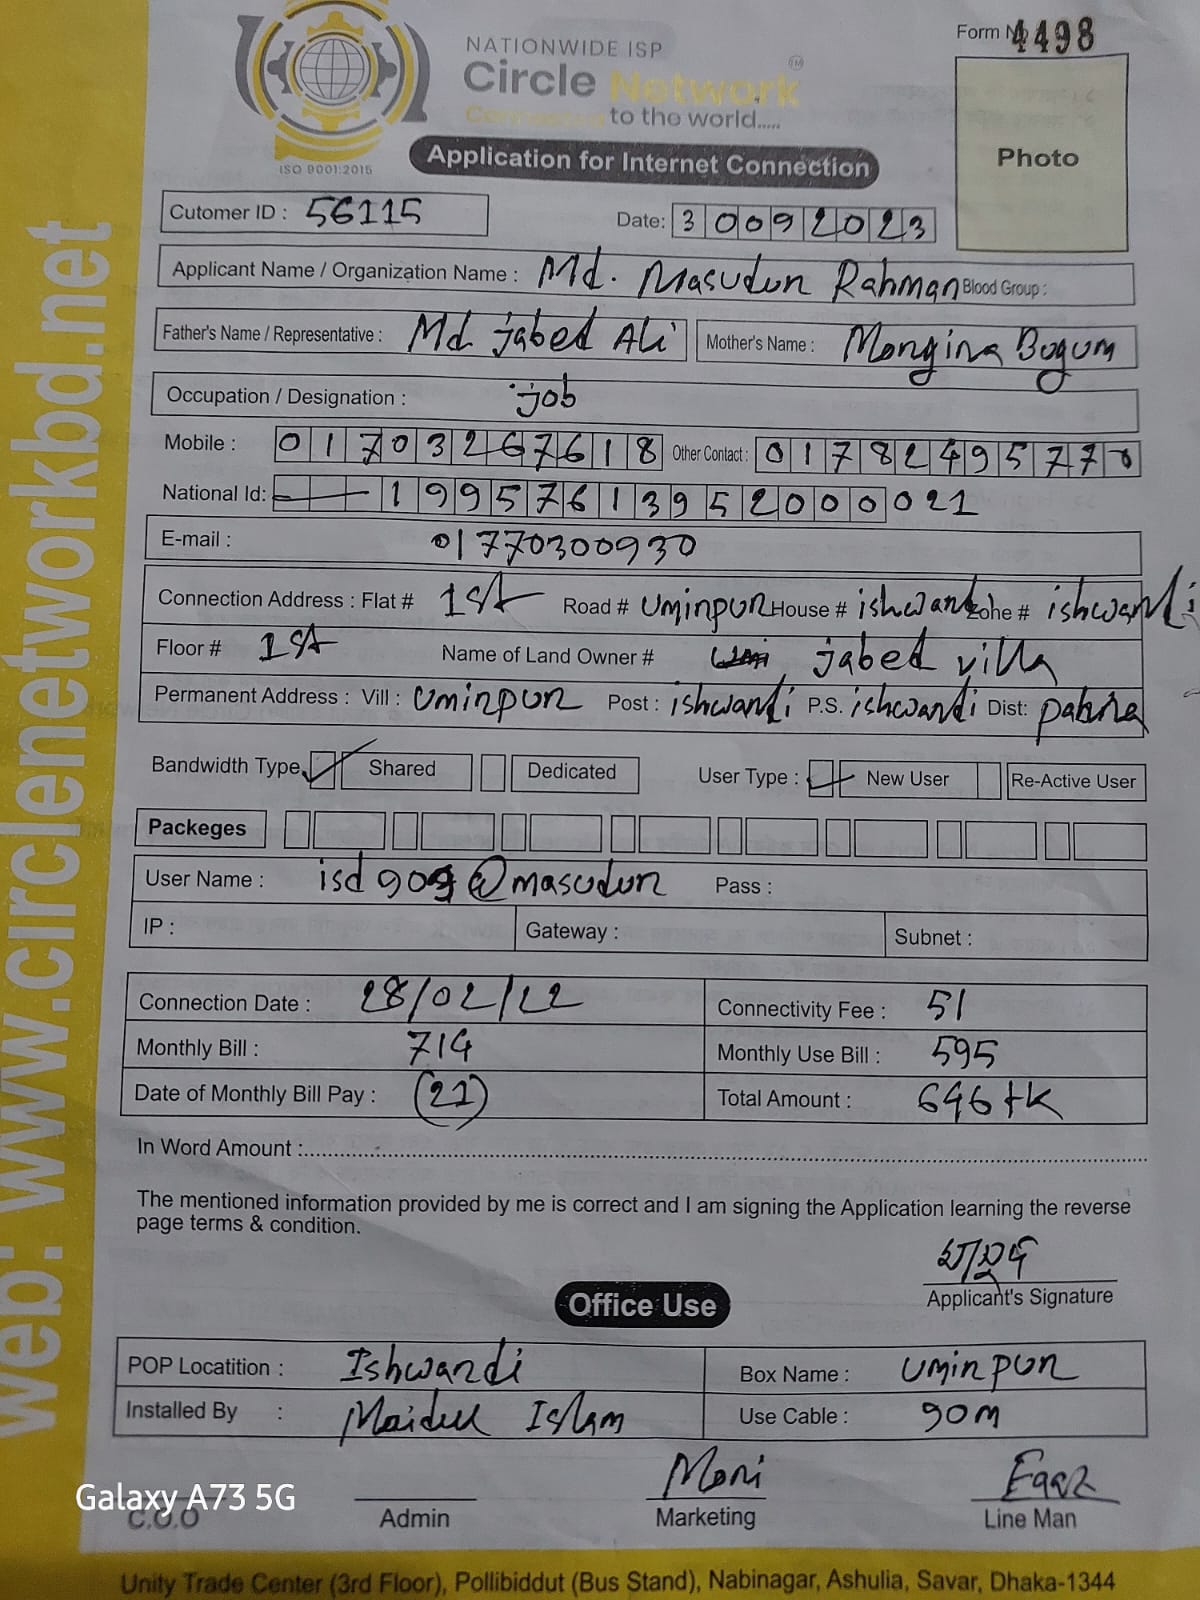 NATIONWIDE ISP
Form № 4498
Circle Network ™
Connected to the world.....
ISO 9001:2015
Application for Internet Connection
Photo
Cutomer ID : 56115
Date: 30092023
Applicant Name / Organization Name : Md. Masudur Rahman Blood Group :
Father's Name / Representative : Md. jabed Ali Mother's Name : Mongina Bogum
Occupation / Designation : job
Mobile : 01703267618 Other Contact : 01782495770
National Id: 19957613952000021
E-mail : 01770300930
Connection Address : Flat # 1st Road # Uminpur House # ishwardi Zone # ishwardi
Floor # 1st Name of Land Owner # jabed villa
Permanent Address : Vill : Uminpur Post : ishwardi P.S. ishwardi Dist: pabna
Bandwidth Type Shared Dedicated User Type : New User Re-Active User
Packeges
User Name : isd909@masudur Pass :
IP : Gateway : Subnet :
Connection Date : 28/02/22 Connectivity Fee : 51
Monthly Bill : 714 Monthly Use Bill : 595
Date of Monthly Bill Pay : (21) Total Amount : 646 tk
In Word Amount :
The mentioned information provided by me is correct and I am signing the Application learning the reverse
page terms & condition.
মাসুদ
Applicant's Signature
Office Use
POP Locatition : Ishwardi Box Name : Uminpur
Installed By : Maidul Islam Use Cable : 90m
Moni
C.O.O Admin Marketing Line Man
Galaxy A73 5G
Unity Trade Center (3rd Floor), Pollibiddut (Bus Stand), Nabinagar, Ashulia, Savar, Dhaka-1344
web: www.circlenetworkbd.net